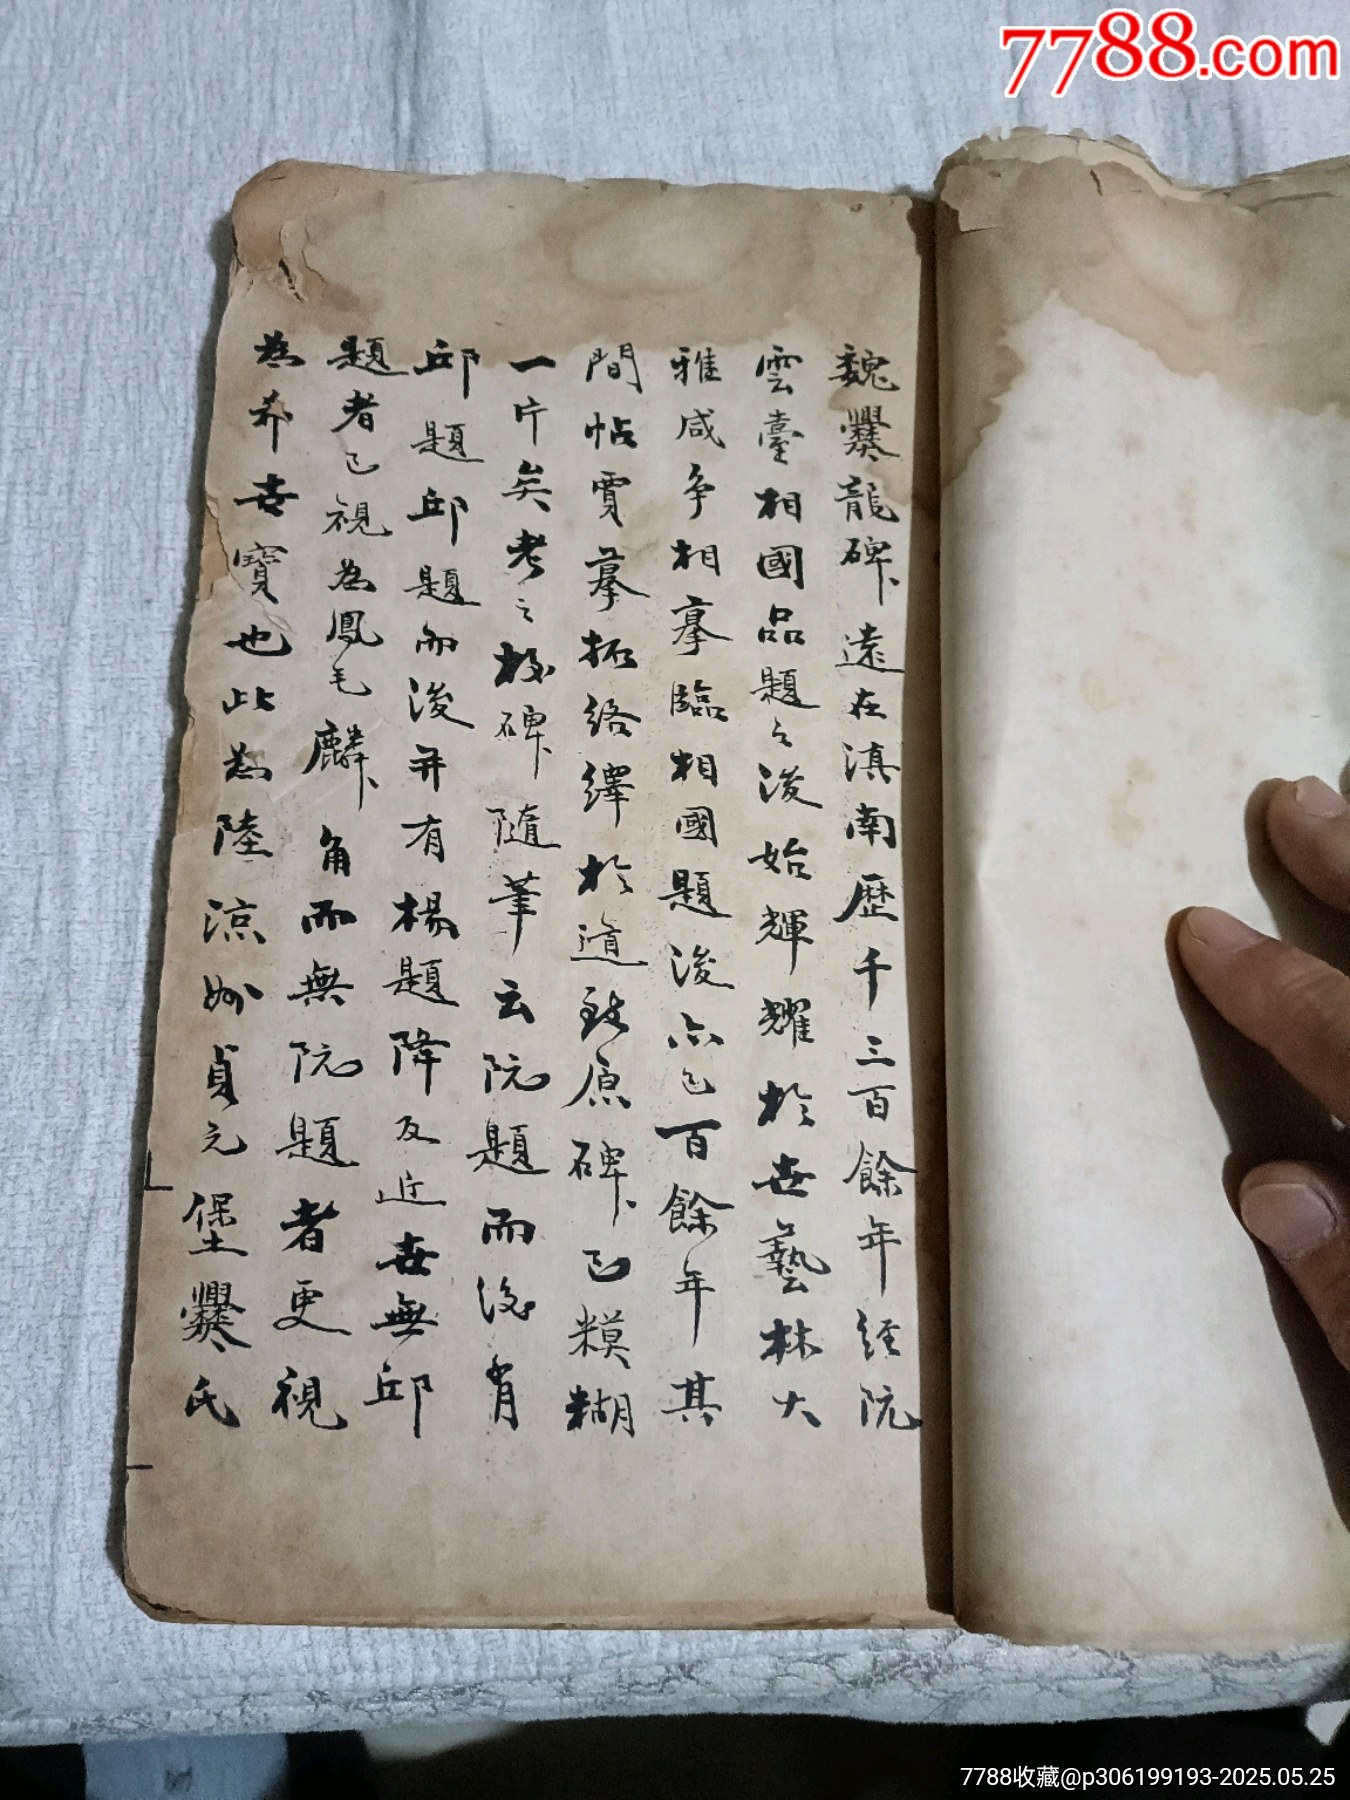 7788.com
魏爨龍碑遠在滇南歷千三百餘年經阮
雲臺相國品題之後始輝耀於世藝林大
雅咸争相摹臨相國題後亦已百餘年其
間帖賈摹拓絡繹於道致原碑已糢糊
一片矣考之校碑隨筆云阮題而後有
邱題邱題而後并有楊題降及近世無邱
題者已視為鳳毛麟角而無阮題者更視
為希世寶也此為陸涼州貞元堡爨氏
7788收藏@p306199193-2025.05.25